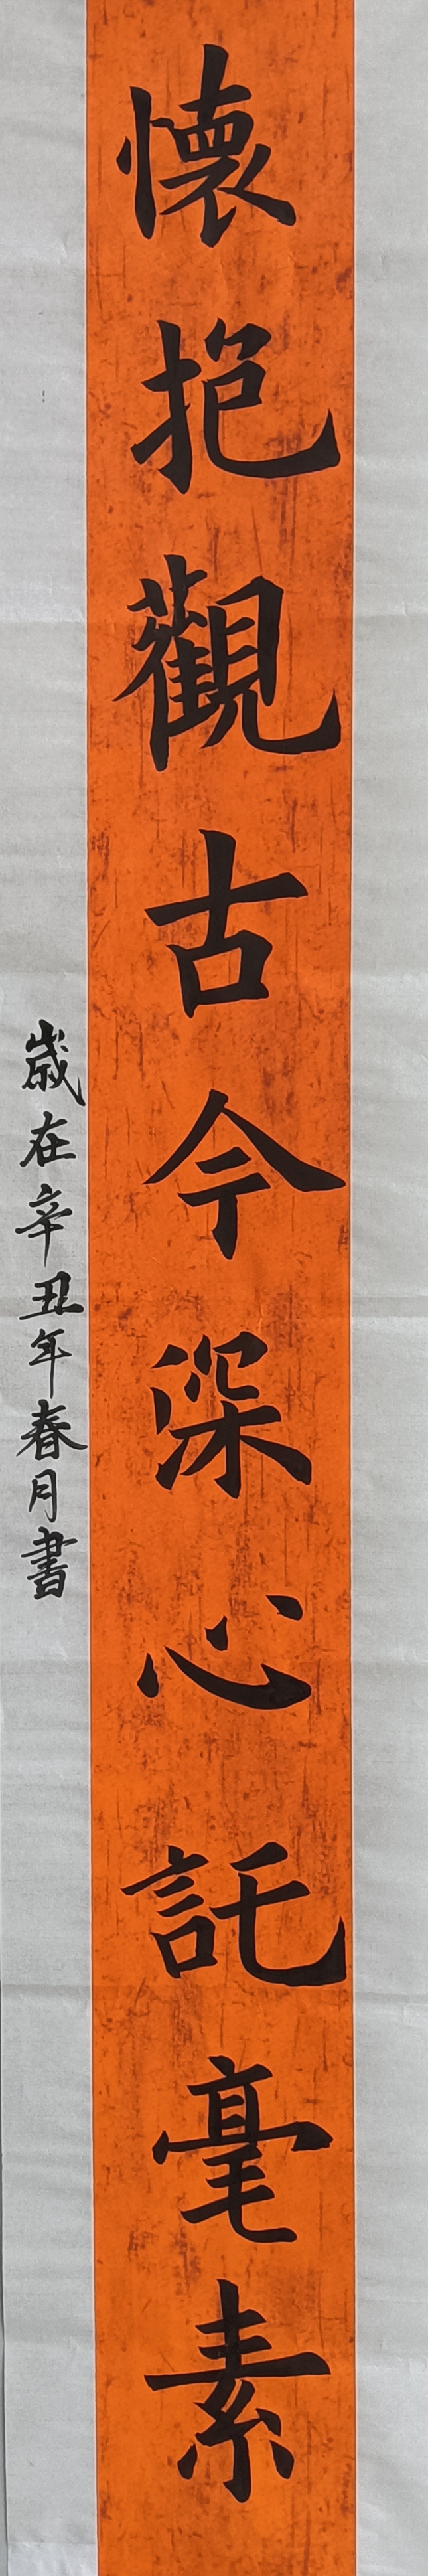 懷抱觀古今深心託毫素
歲在辛丑年春月書